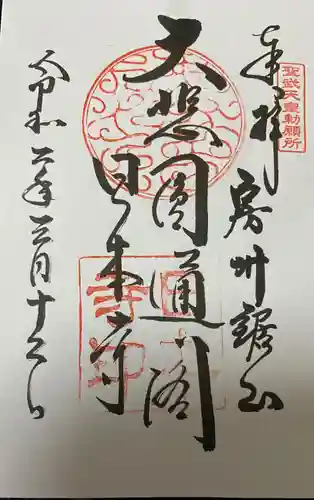 聖武天皇勅願所
奉拝 房州鋸山
大悲圓通閣
日本寺
令和二年三月十日